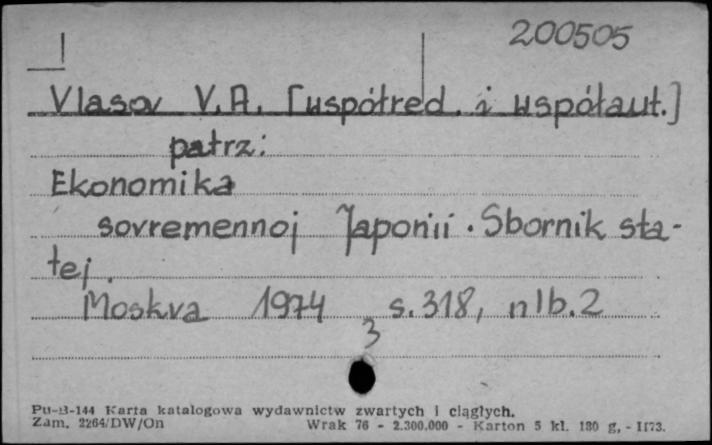 200505
Vlasov V.A. [współred. i współaut.]
patrz:
Ekonomika
sovremennoj Japonii. Sbornik sta-
tej.
Moskva 1974 s. 318, nlb. 2
3
Pu-B-144 Karta katalogowa wydawnictw zwartych i ciągłych.
Zam. 2264/DW/On Wrak 76 - 2.300.000 - Karton 5 kl. 180 g, - II73.